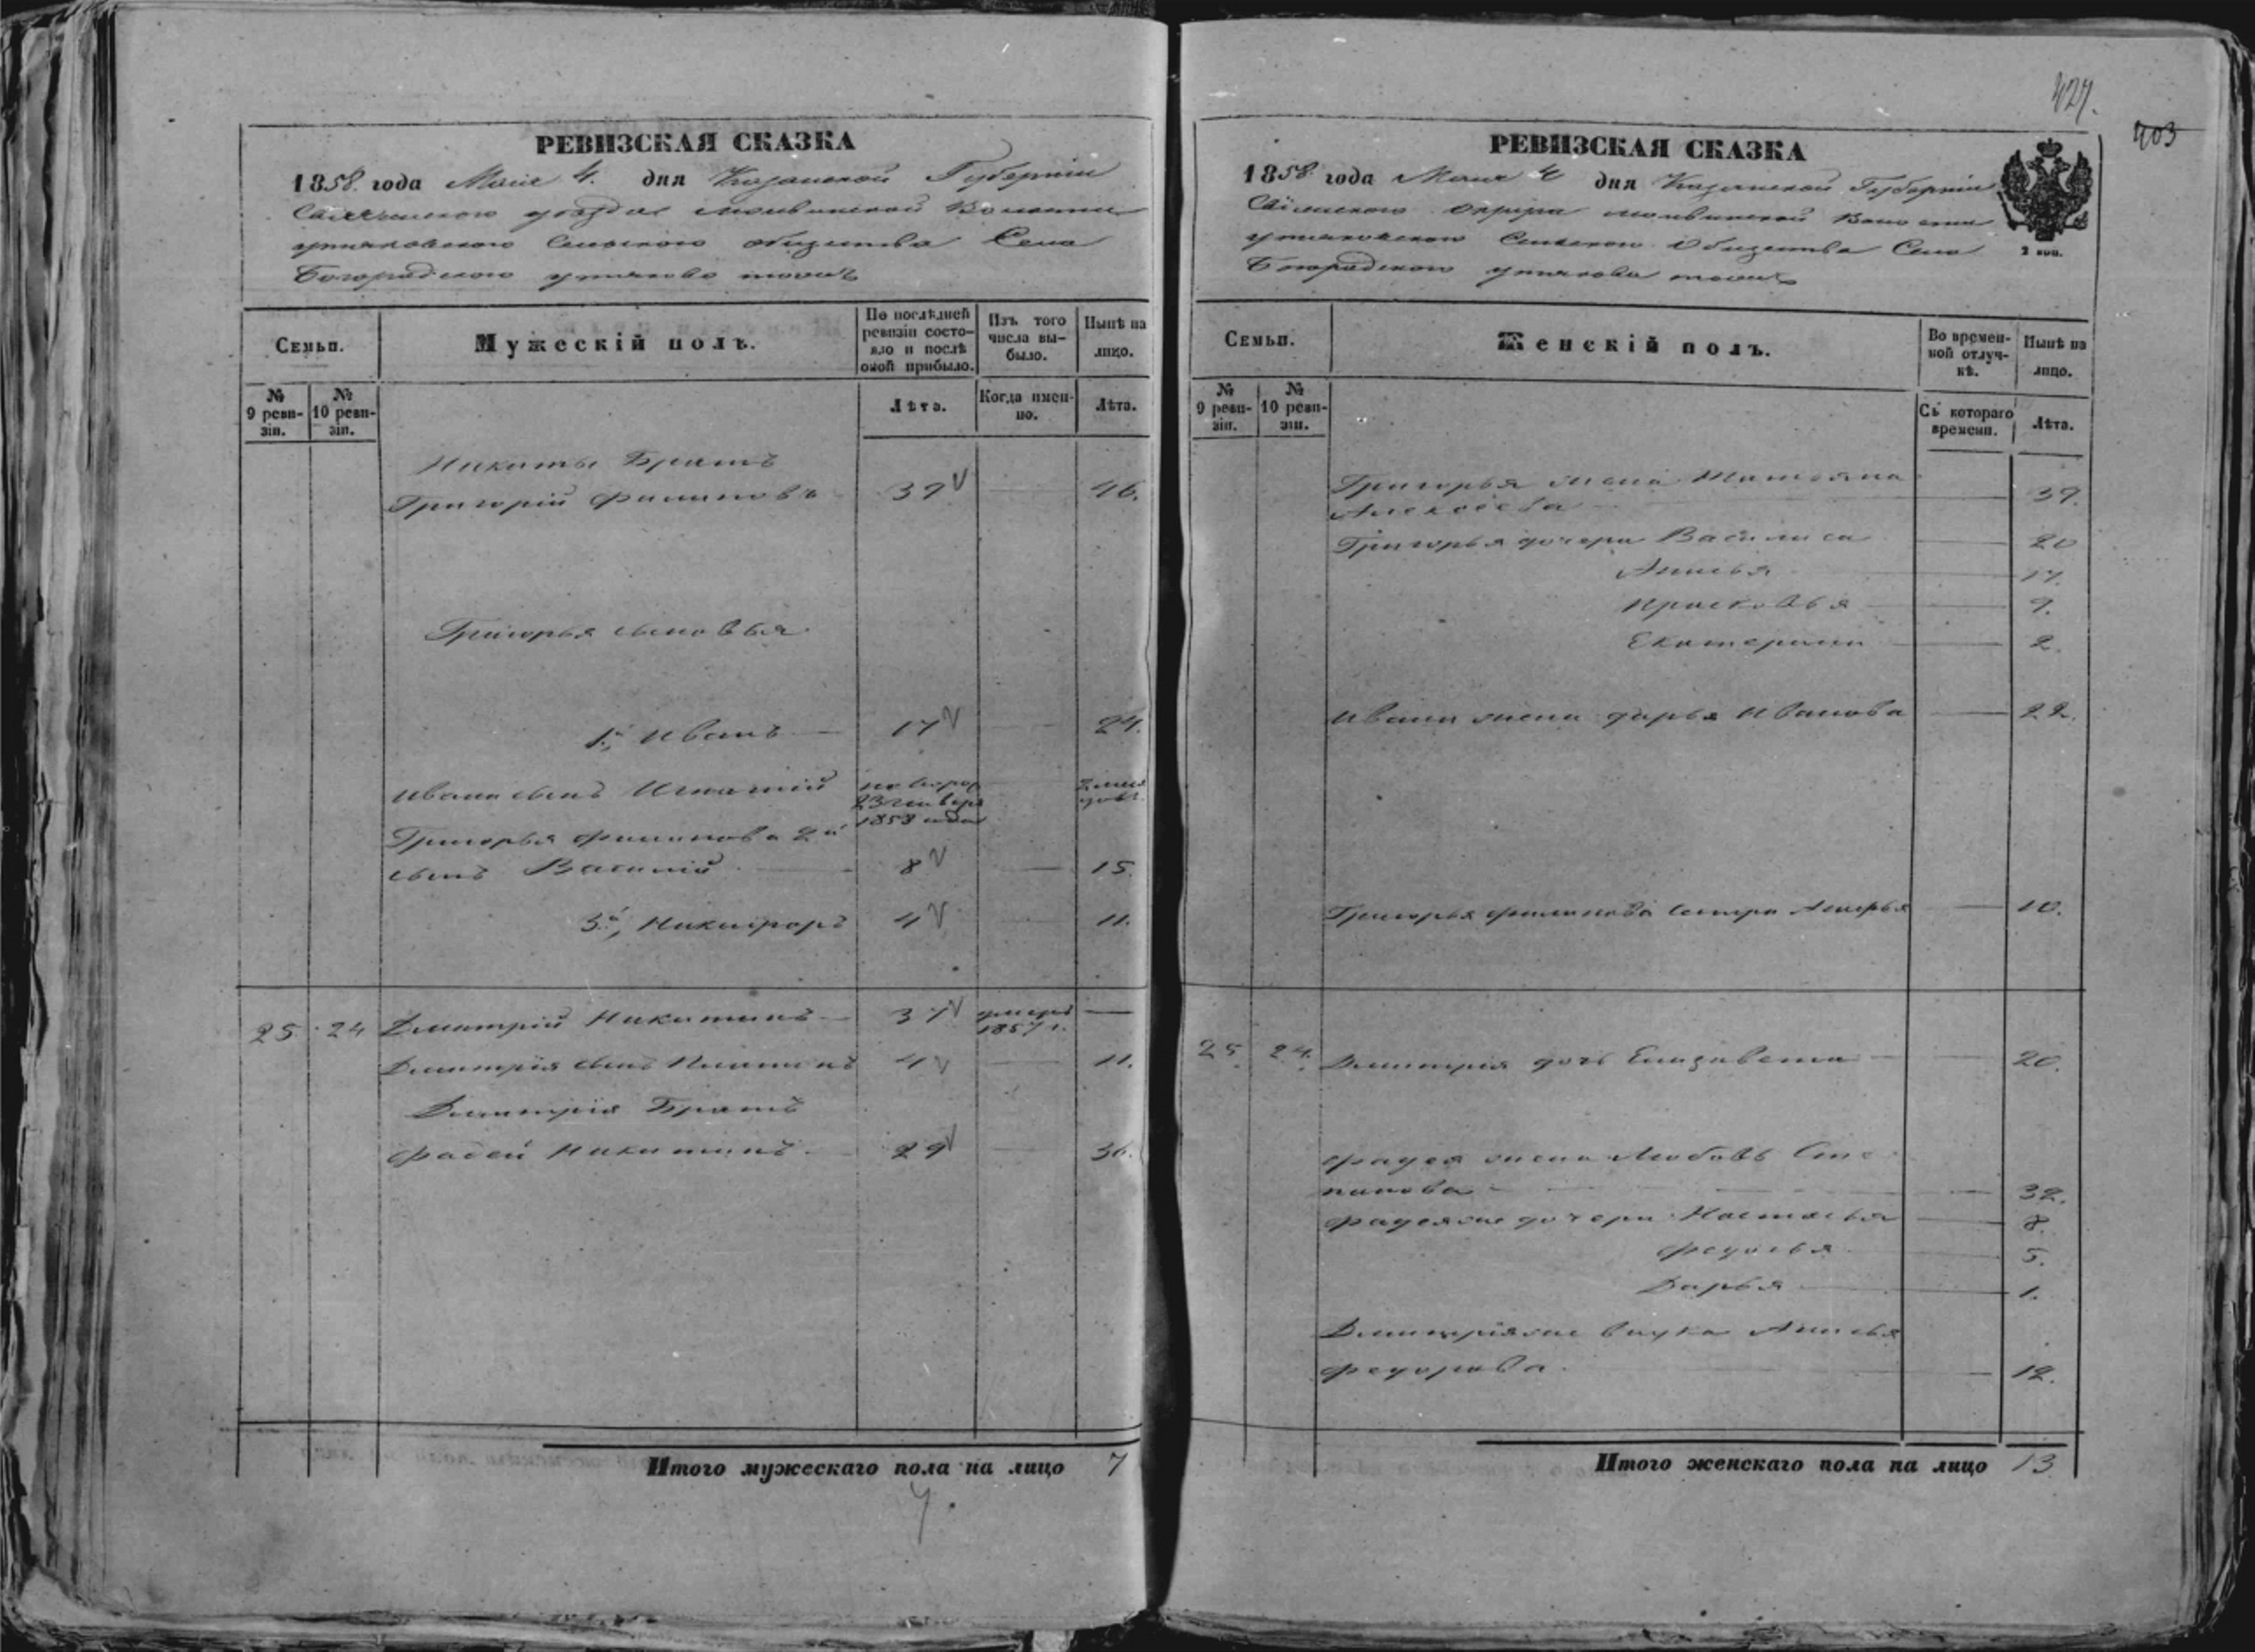 427.
403
РЕВИЗСКАЯ СКАЗКА
1858. года Мая 4. дня Казанской Губерніи
уезда Волости
Сельскаго общества Села
Богородскаго тожъ
Семьи.
Мужескій полъ.
По послѣдней ревизіи состояло и послѣ оной прибыло.
Изъ того числа выбыло.
Нынѣ на лицо.
№ 9 ревизіи.
№ 10 ревизіи.
Лѣта.
Когда именно.
Лѣта.
Никиты Братъ
Григорій Филиповъ 39 46.
Григорья сыновья
1й, Иванъ 17 24.
Ивана сынъ Игнатій
23 генваря
1858 года
Григорья Филипова 2й
сынъ Василій 8 15.
3й, Никифоръ 4 11.
25 24 Дмитрій Никитинъ 37 умеръ 1857 г.
Дмитрія сынъ Платонъ 4 11.
Дмитрія Братъ
Фадей Никитинъ 29 36.
Итого мужескаго пола на лицо 7
7.
РЕВИЗСКАЯ СКАЗКА
1858. года Мая 4 дня Казанской Губерніи
округа Волости
Сельскаго Общества Села
Богородскаго тожъ
2 коп.
Семьи.
Женскій полъ.
Во временной отлучкѣ.
Нынѣ на лицо.
№ 9 ревизіи.
№ 10 ревизіи.
Съ котораго времени.
Лѣта.
Григорья жена Татьяна
Алексеева 39.
Григорья дочери Василиса 20
Анисья 17.
Прасковья 9.
Екатерина 2.
Ивана жена Дарья Иванова 22.
Григорья Филипова 10.
25. 24. Дмитрія дочь Елизавета 20.
Фадея жена Любовь Сте
панова 32.
дочери Настасья 8.
Федосья 5.
Дарья 1.
внука Анисья
Федорова 12.
Итого женскаго пола на лицо 13